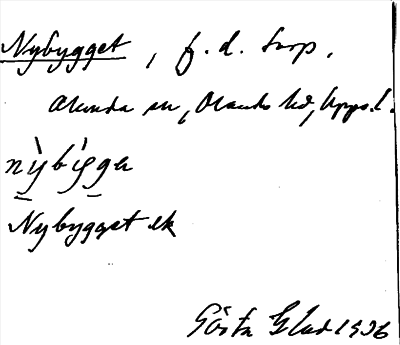 Nybygget, f. d. torp.
Alunda sn, Olands hd, Upps. l.
nỳbýgge
Nybygget ek
Gösta Glad 1936